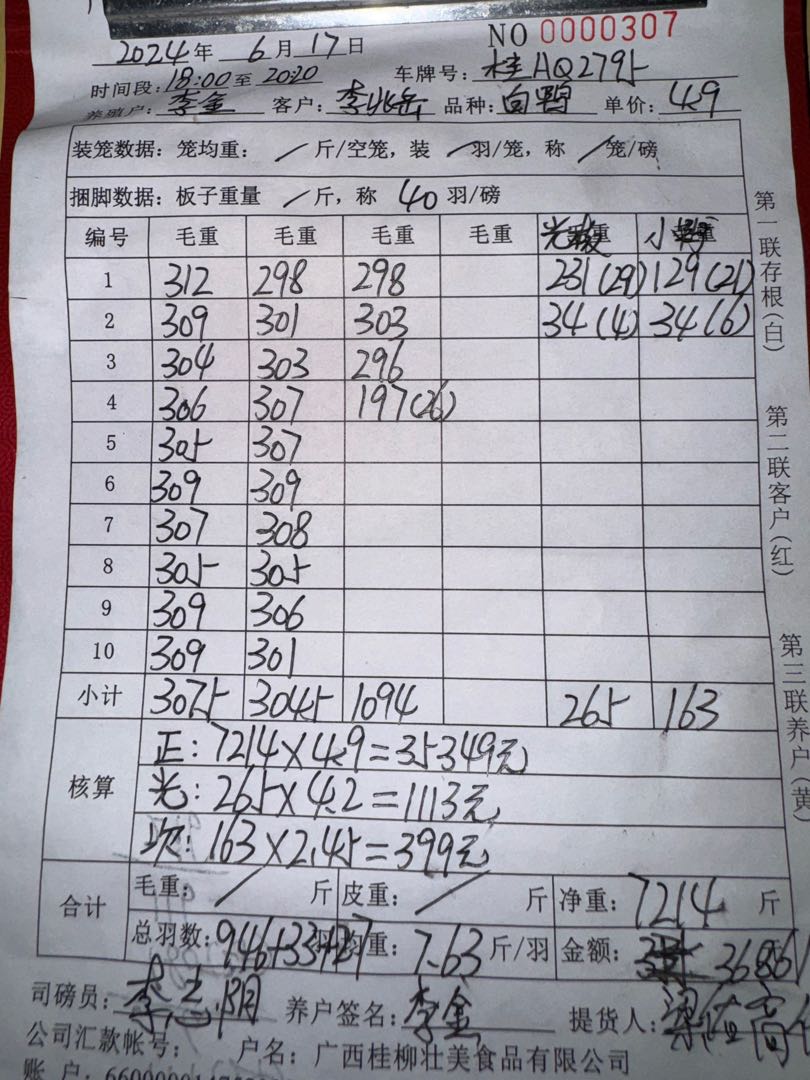 NO 0000307
2024年 6月17日
时间段:18:00至20:20 车牌号:桂AQ2795
养殖户:李金 客户:李兆岳 品种:白鸭 单价:4.9
装笼数据:笼均重: / 斤/空笼,装 / 羽/笼,称 / 笼/磅
捆脚数据:板子重量 / 斤,称 40 羽/磅
编号 毛重 毛重 毛重 毛重 光 重 小 重
1 312 298 298 231(29) 129(21)
2 309 301 303 34(4) 34(6)
3 304 303 296
4 306 307 197(26)
5 305 307
6 309 309
7 307 308
8 305 305
9 309 306
10 309 301
小计 3075 3045 1094 265 163
核算
正:7214×4.9=35349元
光:265×4.2=1113元
次:163×2.45=399元
合计
毛重: / 斤 皮重: / 斤 净重:7214 斤
总羽数:946+33+27羽 均重:7.63 斤/羽 金额: 36861
司磅员:李 阳 养户签名:李金 提货人:梁
公司汇款帐号: 户名:广西桂柳壮美食品有限公司
账 户:
第一联存根(白)
第二联客户(红)
第三联养户(黄)